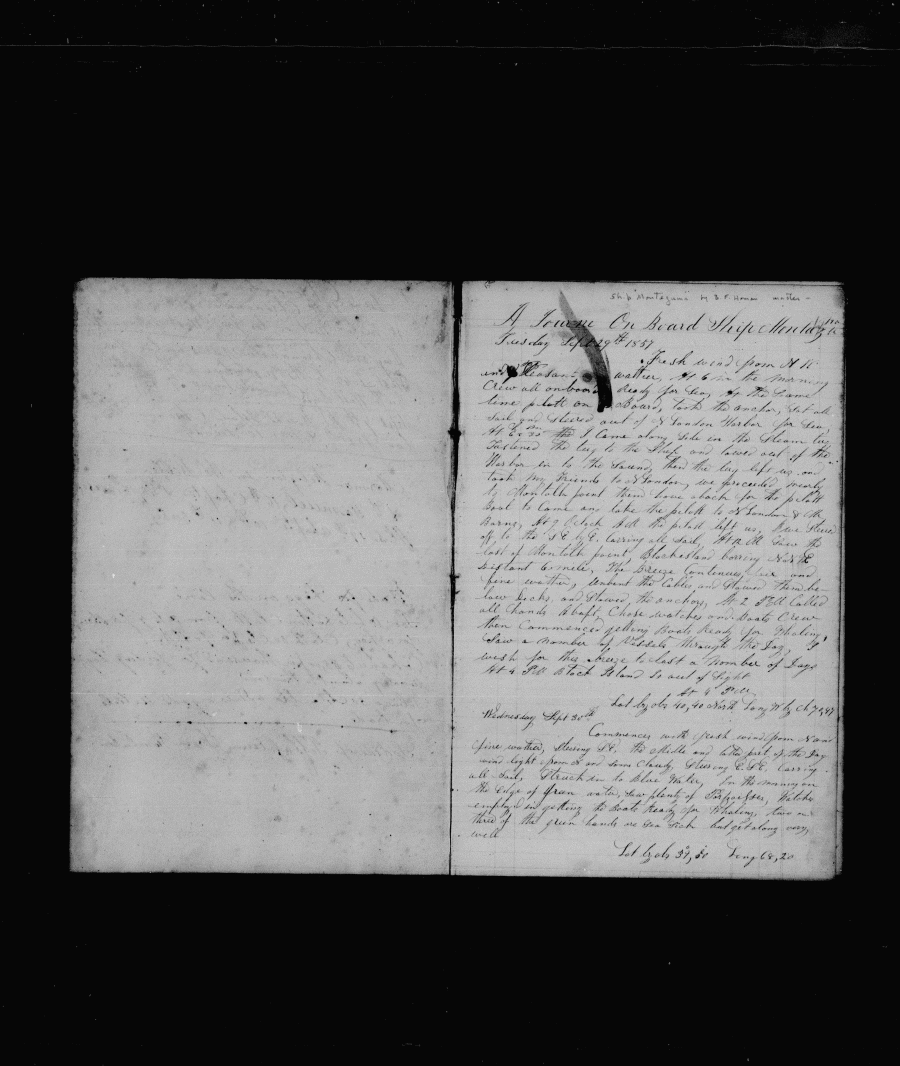 Ship "Montezuma" by B. F. Homan master -
A Journe On Board Ship Montazuma
Tuesday Sept 29th 1857
Fresh wind from N W
and Pleasant wather, At 6 in the morning
Crew all onboard Ready for Sea, At the Same
time pilott on Board, took the anchor, Set all
Sail and Steered out of N London Harbor for Sea,
At 6 30 the I Came along Side in the Steam tug
Fastened the tug to the Ship and towed out of the
Harbor in to the Sound, then the tug left us and
took my Friends to N London, we proceeded nearly
to Montalk point then hove aback for the pilott
Boat to Come and take the pilott to N London
Burns, At 9 Oclock AM the pilott left us, Steered
off to the S.E. by E. Carring all Sail, At M Saw the
last of Montalk point, Blockisland barring
distant 6 miles, The Breeze Contenues and
fine wather, Unbent the Cables and Stowed them be-
low Decks, and Stowed the anchors, At 2 PM Called
all hands Abaft, Chose watches and Boats Crew
then Commenced getting Boats Ready for Whaling,
Saw a Number of Vessels through the Day, I
wish for this breeze to last a Number of Days
At 4 PM Block Island Is out of Sight
At 4 PM
Lat by obs 40,40 North Long W by Ch
Wednesday Sept 30th
Commences with fresh wind from N and
fine wather, Stering S.E. the Middle and latter part of the Day
wind light from and Some Cloudy Stering E.S.E. Carring
all Sail, Struck in to Blue Water, In the morning on
the Edge of Grean water, Saw plenty of Porpoises, Watches
employed in getting the Boats Ready for Whaling, two or
three of the green hands are Sea Sick but get along very
well
Lat by obs 39,50 Long 68,20